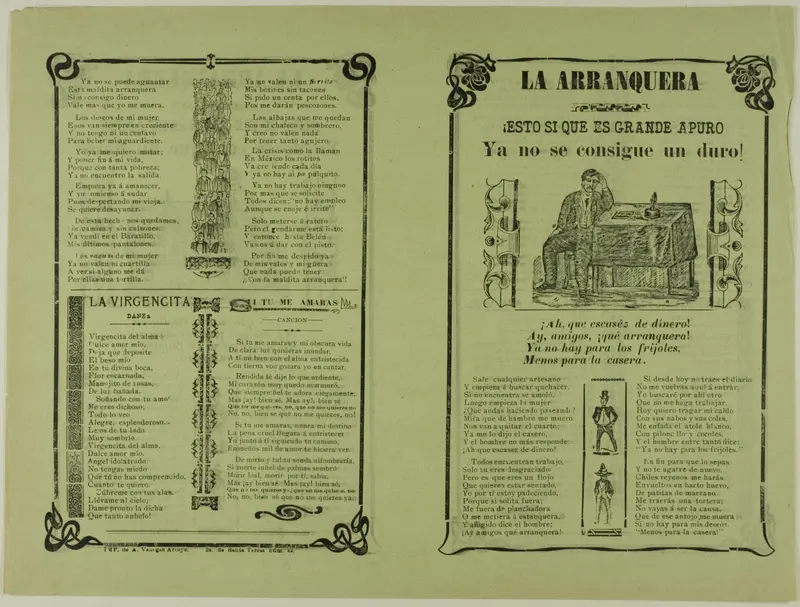 Ya no se puede aguantar
Esta maldita arranquera
Si no consigo dinero
Vale mas que yo me muera.
Los deseos de mi mujer
Esos van siempre en creciente
Y no tengo ni un centavo
Para beber mi aguardiente.
Yo ya me quiero matar;
Y poner fin á mi vida,
Porque con tanta pobreza;
Ya no encuentro la salida.
Empieza ya á amanecer,
Y yo comienso á sudar
Pues despertando mi vieja.
Se quiere desayunar.
De esta hech nos quedamos,
in camisa y sin calsones.
Ya vendí en el Baratillo,
Mis últimos pantalones.
Las enaguas de mi mujer
Ya no valen ni cuartilla
A ver si alguno me dá
Por ellas una tortilla.
Ya no valen ni un
Mis botines sin tacones
Si pido un centa por ellos,
Pos me darán pescozones.
Las alhajas que me quedan
Son mi chaleco y sombrero,
Y creo no valen nada
Por tener tanto agujero.
La crisis como la llaman
En México los rotitos
Va cre iendo cada día
Y ya no hay ni pa pulquito.
Ya no hay trabajo ningnoo
Por mas que se solicite
Todos dicen: "no hay empleo
Aunque se enoje é irrite"
Solo meterse á ratero
Pero el gendarme está listo;
Y entonce h sta Belén
Vamos á dar con el pisto.
Por fin me despido ya
De mis vales y mi güera
Que nada puedo tener
¡Con la maldita arranquera!!
LA VIRGENCITA
DANZA
Virgencita del alma
Dulce amor mío,
Deja que deposite
El beso mío
En tu divina boca,
Flor encarnada,
Manojito de rosas,
De luz bañada.
Soñando con tu amor
Me eres dichoso;
Todo lo veo
Alegre, esplendoroso
Lejos de tu lado
Muy sombrío
Virgencita del alma,
Dulce amor mío,
Angel idolatrado
No tengas miedo
Que tú no has comprendido,
Cuanto te quiero.
Cúbreme con tus alas,
Llévame al cielo;
Dame pronto la dicha
Que tanto anhelo!
SI TU ME AMARAS
CANCION
Si tu me amaras y mi obscura vida
De clara luz quisieras inundar,
A tí mi bien con el alma entristecida
Con tierna voz gozara yo en cantar.
Rendida fé dije lo que ardiente,
Mi corazón muy quedo murmuró,
Que siempre fiel te adora ciegamente;
Mas ¡ay! bien sé. Mas ¡ay! bien sé
Que tú no me quieres, no, que tú no me quieres no
No, no, bien sé que no me quieres, no!
Si tu me amaras, nunca mi destino
La pena cruel llegara á entristecer
Yo junto á tí siguiendo tu camino,
Ensueños mil de amor te hiciera ver.
De mirto y tul tu senda alfombraría,
Si muerte infiel de palmas sembró
Morir leal, morir por tí, sabía;
Mas ¡ay bien sé. Mas ¡ay! bien sé,
Que tú no me quieres, no, que tú no me quieres, no
No, no, bien sé que no me quieres ya.
IMP. de A. Vanegas Arroyo. 2a. de Santa Teresa núm. 43
LA ARRANQUERA
¡ESTO SI QUE ES GRANDE APURO
Ya no se consigue un duro!
¡Ah, que escaséz de dinero!
Ay, amigos, ¡qué arranquera!
Ya no hay para los frijoles,
Menos para la casera.
Sale cualquier artesano
Y empieza á buscar quehacer.
Si no encuentra se amoló,
Luego empieza la mujer
¿Que andas haciendo paseando?
Mira que de hambre me muero
Non van a quitar el cuarto;
Ya me lo dijo el casero,
Y el hombre no mas responde:
¡Ah que escasez de dinero!
Todos encuentran trabajo,
Solo tu eres desgraciado
Pero es que eres un flojo
Que quieres estar sentado,
Yo por tí estoy padeciendo,
Porque si solita fuera;
Me fuera de planchadora
O me metiera á estanquera,
Y afligido dice el hombre;
¡Ay amigos qué arranquera!
Si desde hoy no traes el diario
No me vuelvas aquí á entrar,
Yo buscaré por ahí otro
Que no me haga trabajar.
Hoy quiero tragar mi caldo
Con sus nabos y sus coles,
Me enfada el atole blanco,
Con piloncillo y cocoles,
Y el hombre entre tanto dice:
"Ya no hay para los frijoles."
En fin para que lo sepas
Y no te agarre de nuevo,
Chiles reyenos me harás
Envueltos en harto huevo,
De patitas de marrano
Me traerás una tortera;
No vayas á ser la causa,
Que de ese antojo me muera
Si no hay para mis deseos,
"Menos para la casera!"